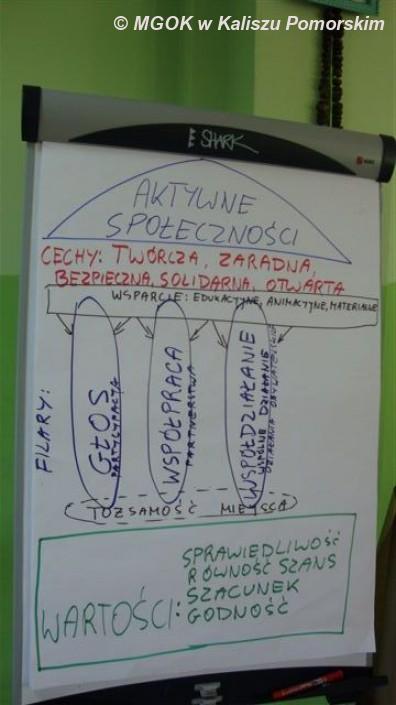 © MGOK w Kaliszu Pomorskim
SHARK
AKTYWNE
SPOŁECZNOŚCI
CECHY: TWÓRCZA, ZARADNA,
BEZPIECZNA, SOLIDARNA, OTWARTA
WSPARCIE: EDUKACYJNE, ANIMACYJNE, MATERIALNE
FILARY:
GŁOS
PARTYCYPACJA
WSPÓŁPRACA
PARTNERSTWA
WSPÓŁDZIAŁANIE
WSPÓLNE DZIAŁANIE
DZIAŁANIA OBYWATELSKIE
TOŻSAMOŚĆ MIEJSCA
WARTOŚCI:
SPRAWIEDLIWOŚĆ
RÓWNOŚĆ SZANS
SZACUNEK
GODNOŚĆ